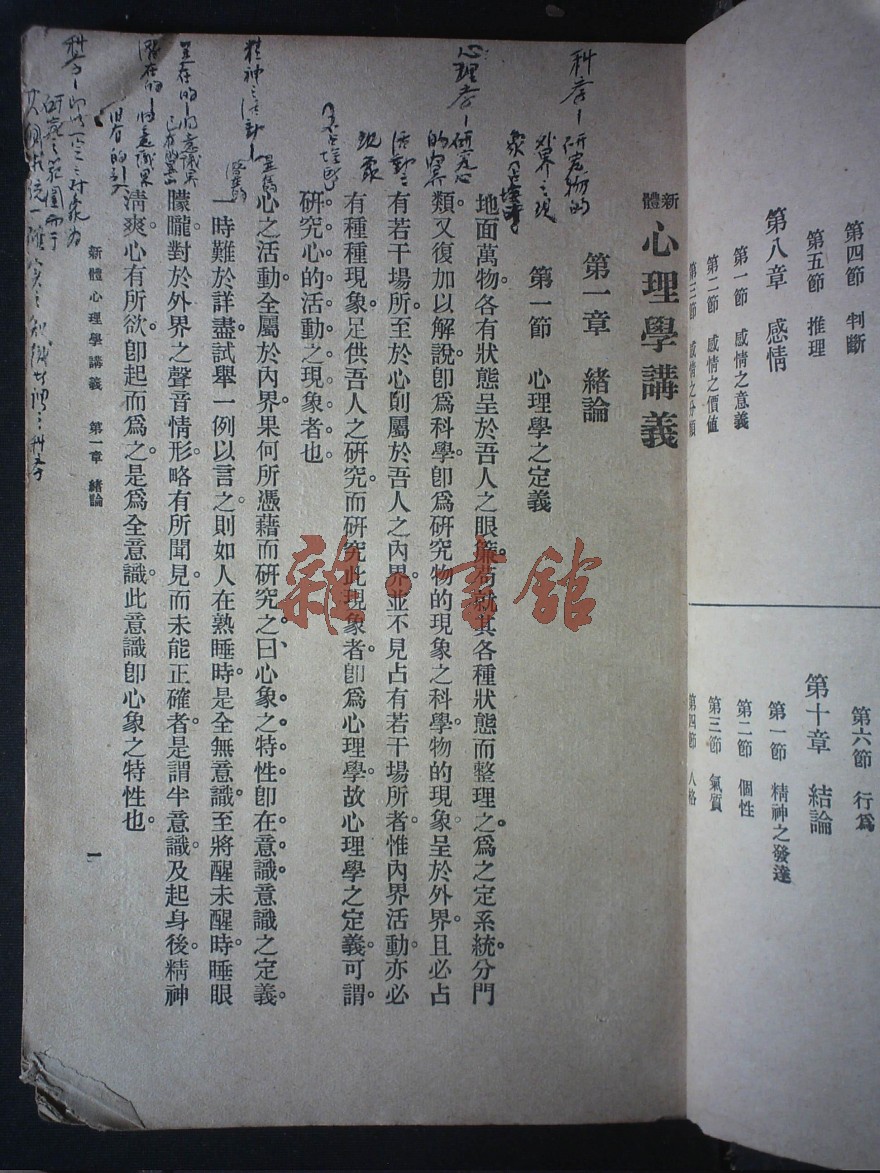 第四節　判斷
第五節　推理
第八章　感情
第一節　感情之意義
第二節　感情之價値
第三節　感情之分類
第六節　行爲
第十章　結論
第一節　精神之發達
第二節　個性
第三節　氣質
第四節　人格
新體
心理學講義
第一章　緒論
第一節　心理學之定義
地面萬物。各有狀態呈於吾人之眼簾。苟就其各種狀態而整理之。爲之定系統。分門
類。又復加以解說。卽爲科學。卽爲研究物的現象之科學。物的現象呈於外界。且必占
有若干場所。至於心則屬於吾人之內界。並不見占有若干場所者。惟內界活動。亦必
有種種現象。足供吾人之研究。而研究此現象者。卽爲心理學。故心理學之定義。可謂
研究心的活動之現象者也。
心之活動。全屬於內界。果何所憑藉而研究之。曰、心象之特性。卽在意識。意識之定義。
一時難於詳盡。試舉一例以言之。則如人在熟睡時。是全無意識。至將醒未醒時。睡眼
朦朧。對於外界之聲音情形。略有所聞見。而未能正確者。是謂半意識。及起身後。精神
淸爽。心有所欲。卽起而爲之。是爲全意識。此意識卽心象之特性也。
新體心理學講義　第一章　緒論
一
科学—研究物的
外界之現
心理学—研究心
的內界
活動之
現象
精神之活動—
雜·書館